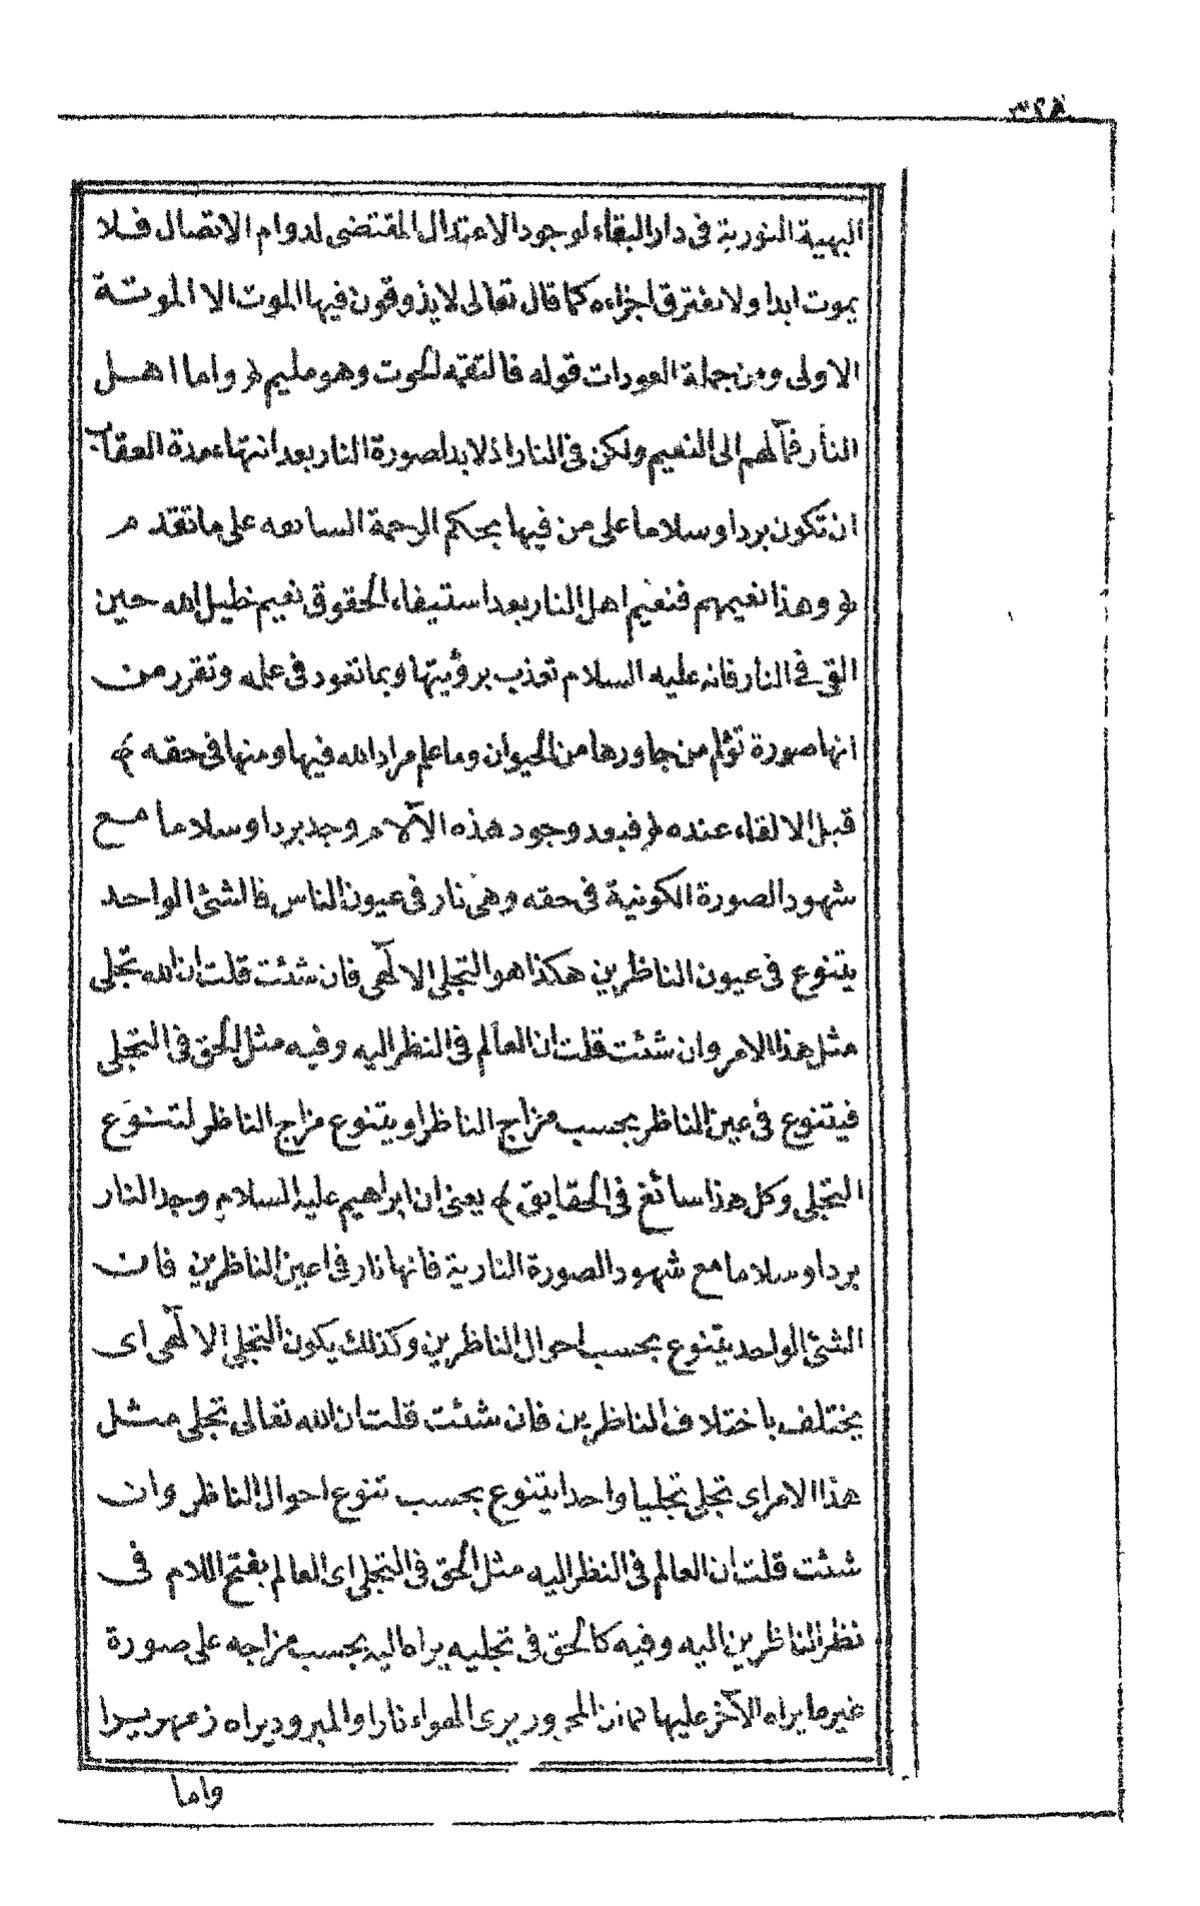 ٣٢٨
البهية النورية فى دار البقاء لوجود الاعتدال المقتضى لدوام الاتصال فلا
يموت ابدا ولا تفترق اجزاءه كما قال تعالى لا يذوقون فيها الموت الا الموتة
الاولى ومن جملة العودات قوله فالتقمه الحوت وهو مليم ﴿ واما اهل
النار فمآلهم الى النعيم ولكن فى النار اذ لابد لصورة النار بعد انتهاء مدة العقاب
ان تكون بردا وسلاما على من فيها بحكم الرحمة السابقه على ما تقدم
﴿ وهذا نعيمهم فنعيم اهل النار بعد استيفاء الحقوق نعيم خليل الله حين
القى فى النار فانه عليه السلام تعذب برؤيتها وبما تعود فى علمه وتقرر من
انها صورة تؤلم من جاورها من الحيوان وما علم مراد الله فيها ومنها فى حقه ﴾
قبل الالقاء عنده ﴿ فبعد وجود هذه الآلام وجد بردا وسلاما مع
شهود الصورة الكونية فى حقه وهى نار فى عيون الناس فالشئ الواحد
يتنوع فى عيون الناظرين هكذا هو التجلى الالهى فان شئت قلت ان الله تجلى
مثل هذا الامر وان شئت قلت ان العالم فى النظر اليه وفيه مثل الحق فى التجلى
فيتنوع فى عين الناظر بحسب مزاج الناظر او يتنوع مزاج الناظر لتنوع
التجلى وكل هذا سائغ فى الحقايق ﴾ يعنى ان ابراهيم عليه السلام وجد النار
بردا وسلاما مع شهود الصورة النارية فانها نار فى اعين الناظرين فان
الشئ الواحد يتنوع بحسب احوال الناظرين وكذلك يكون التجلى الالهى اى
يختلف باختلاف الناظرين فان شئت قلت ان الله تعالى تجلى مثل
هذا الامر اى تجلى تجليا واحدا يتنوع بحسب تنوع احوال الناظر وان
شئت قلت ان العالم فى النظر اليه مثل الحق فى التجلى اى العالم بفتح اللام فى
نظر الناظرين اليه وفيه كالحق فى تجليه يراه اليه بحسب مزاجه على صورة
غير ما يراه الآخر عليها فان المحرور يرى الهواء نارا والمبرود يراه زمهريرا
واما